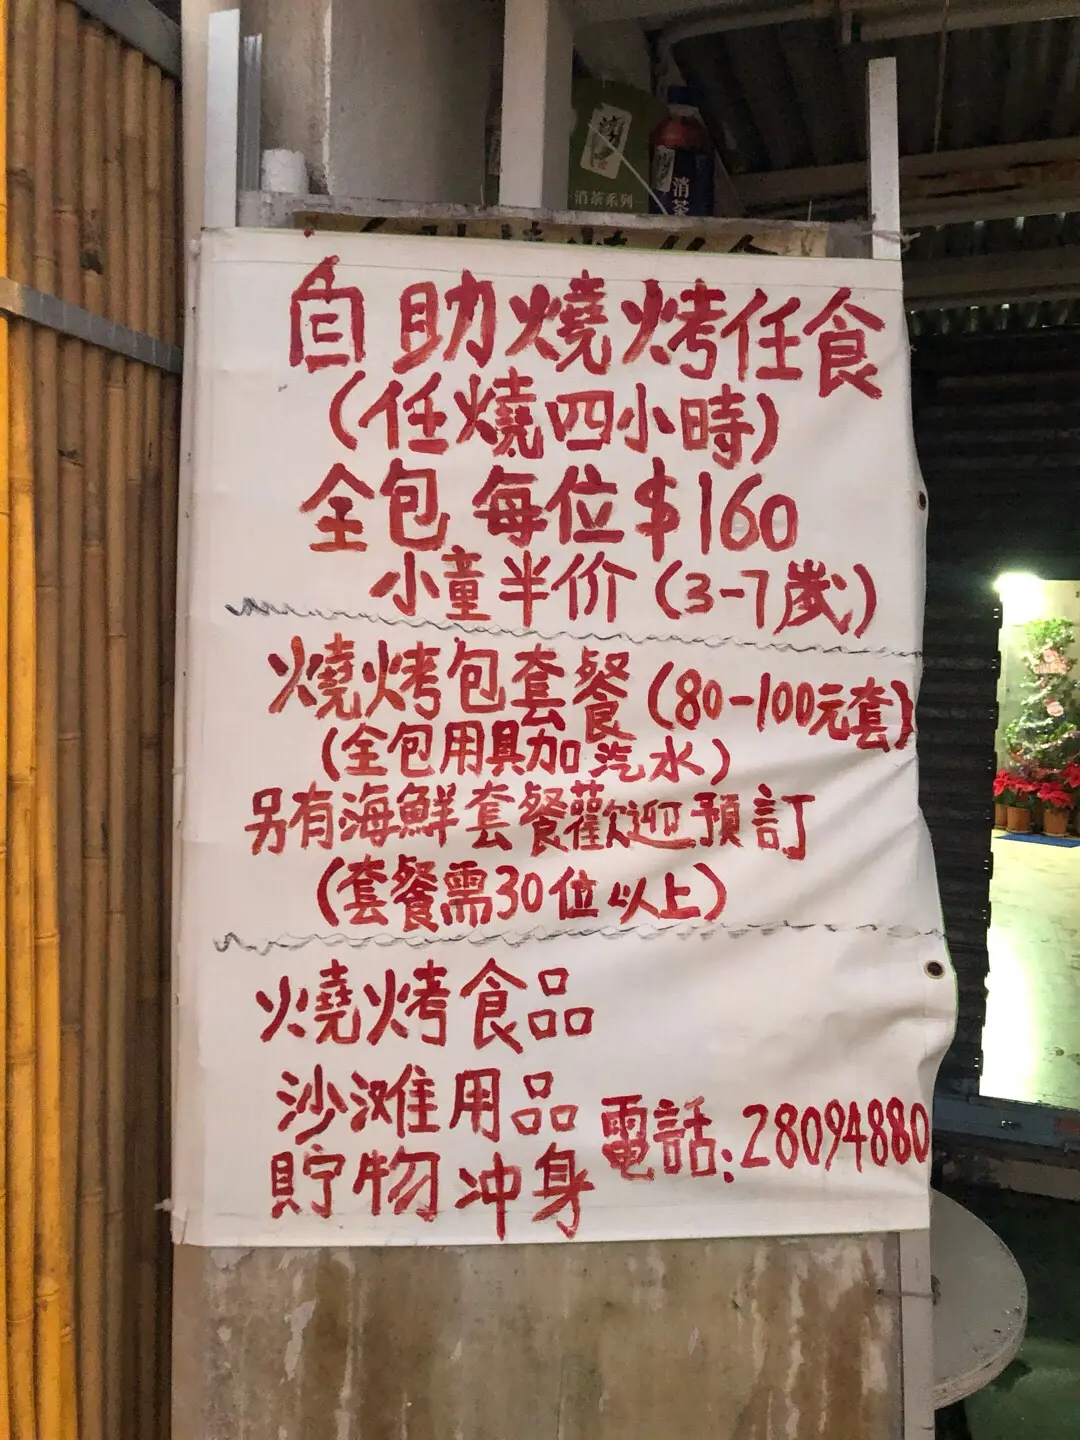 消茶系列
消茶
自助燒烤任食
(任燒四小時)
全包 每位$160
小童半价(3-7歲)
燒烤包套餐(80-100元套)
(全包用具加汽水)
另有海鮮套餐歡迎預訂
(套餐需30位以上)
燒烤食品
沙滩用品
貯物冲身
電話:28094880